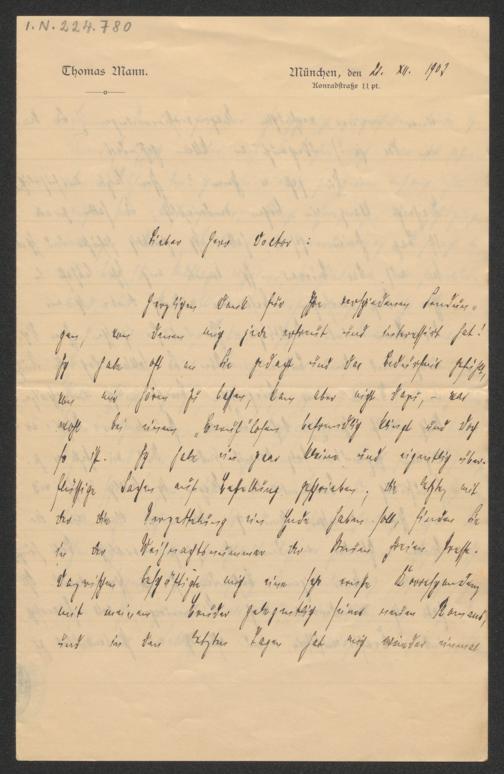 I.N. 224.780
Thomas Mann.
München, den 21. XII. 1903
Konradstraße 11 pt.
Lieber Herr Doctor:
Herzlichen Dank für Ihre verschiedenen Sendun-
gen, von denen mich jede erfreut und interessirt hat!
Ich habe oft an Sie gedacht und das Bedürfnis gefühlt,
von mir hören zu lassen, kam aber nicht dazu, – was
wohl bei einem "Beruf"losen befremdlich klingt und doch
so ist. Ich habe ein paar kleine und eigentlich über-
flüssige Sachen auf Bestellung geschrieben; die letzte, mit
der die Verzettelung ein Ende haben soll, finden Sie
in der Weihnachtsnummer der Neuen Freien Presse.
Dazwischen beschäftigte mich eine sehr ernste Correspondenz
mit meinem Bruder gelegentlich seines neuen Romans,
und in den letzten Tagen hat mich wieder einmal